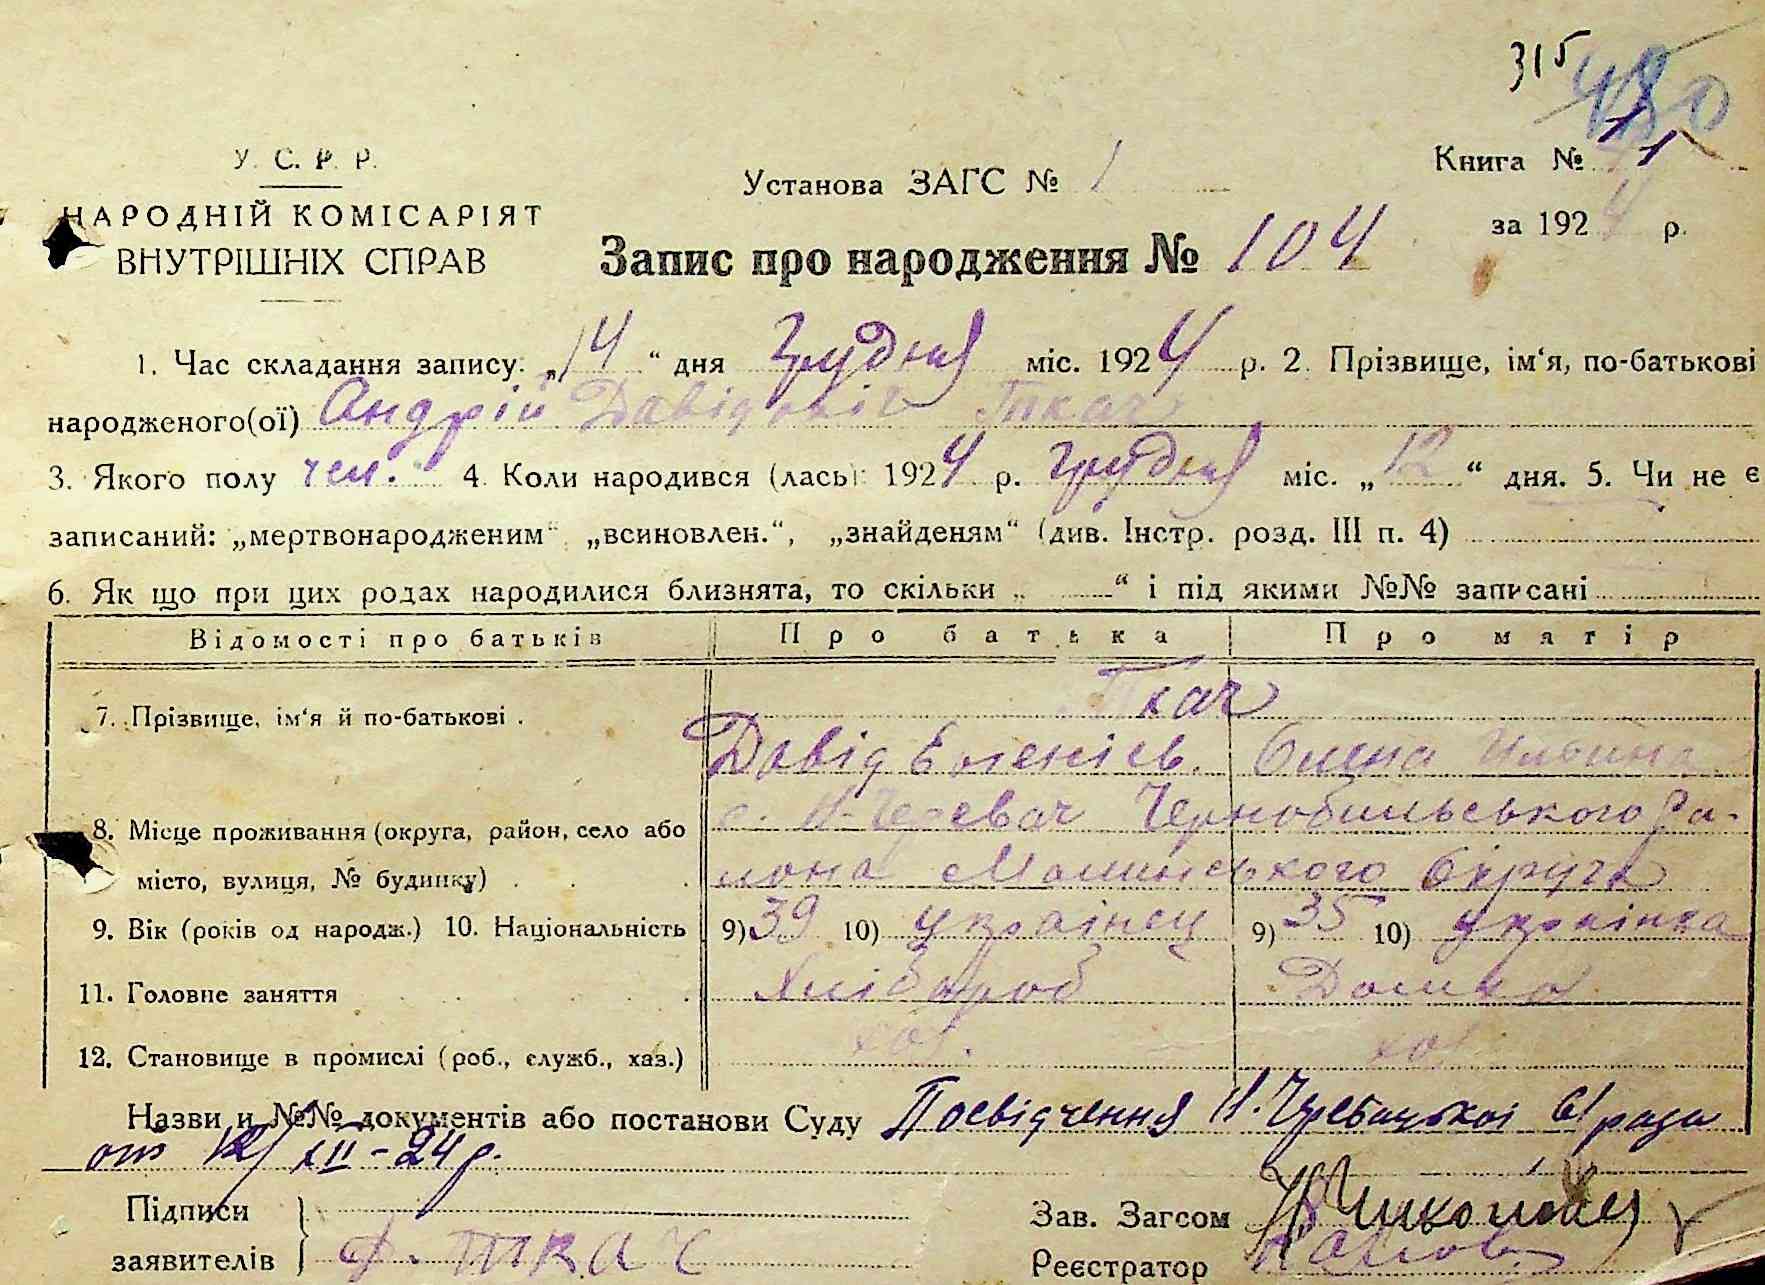 315
480
У. С. Р. Р.
НАРОДНІЙ КОМІСАРІЯТ
ВНУТРІШНІХ СПРАВ
Установа ЗАГС № 1
Книга № 11
за 1924 р.
Запис про народження № 104
1. Час складання запису: „14“ дня Грудня міс. 1924 р. 2. Прізвище, ім‘я, по-батькові
народженого(ої) Андрій Давідовіч Ткач
3. Якого полу чол. 4. Коли народився (лась) 1924 р. грудня міс. „12“ дня. 5. Чи не є
записаний: „мертвонародженим“ „всиновлен.“, „знайденям“ (див. Інстр. розд. III п. 4)
6. Як що при цих родах народилися близнята, то скільки „ “ і під якими №№ записані
Відомості про батьків Про батька Про матір
Ткач
7. Прізвище, ім‘я й по-батькові
Давід Олена
8. Місце проживання (округа, район, село або с. Н-Черевач Чернобильського Ра-
місто, вулиця, № будинку) йона Малинського Округа
9. Вік (років од народж.) 10. Національність 9) 39 10) українец 9) 35 10) українка
11. Головне заняття Хлібороб Домха
12. Становище в промислі (роб., служб., хаз.) хаз. хаз
Назви и №№ документів або постанови Суду Посвідчення Н. С/ради
от 12/XII-24 р.
Підписи
заявителів Д. Ткач
Зав. Загсом
Реєстратор